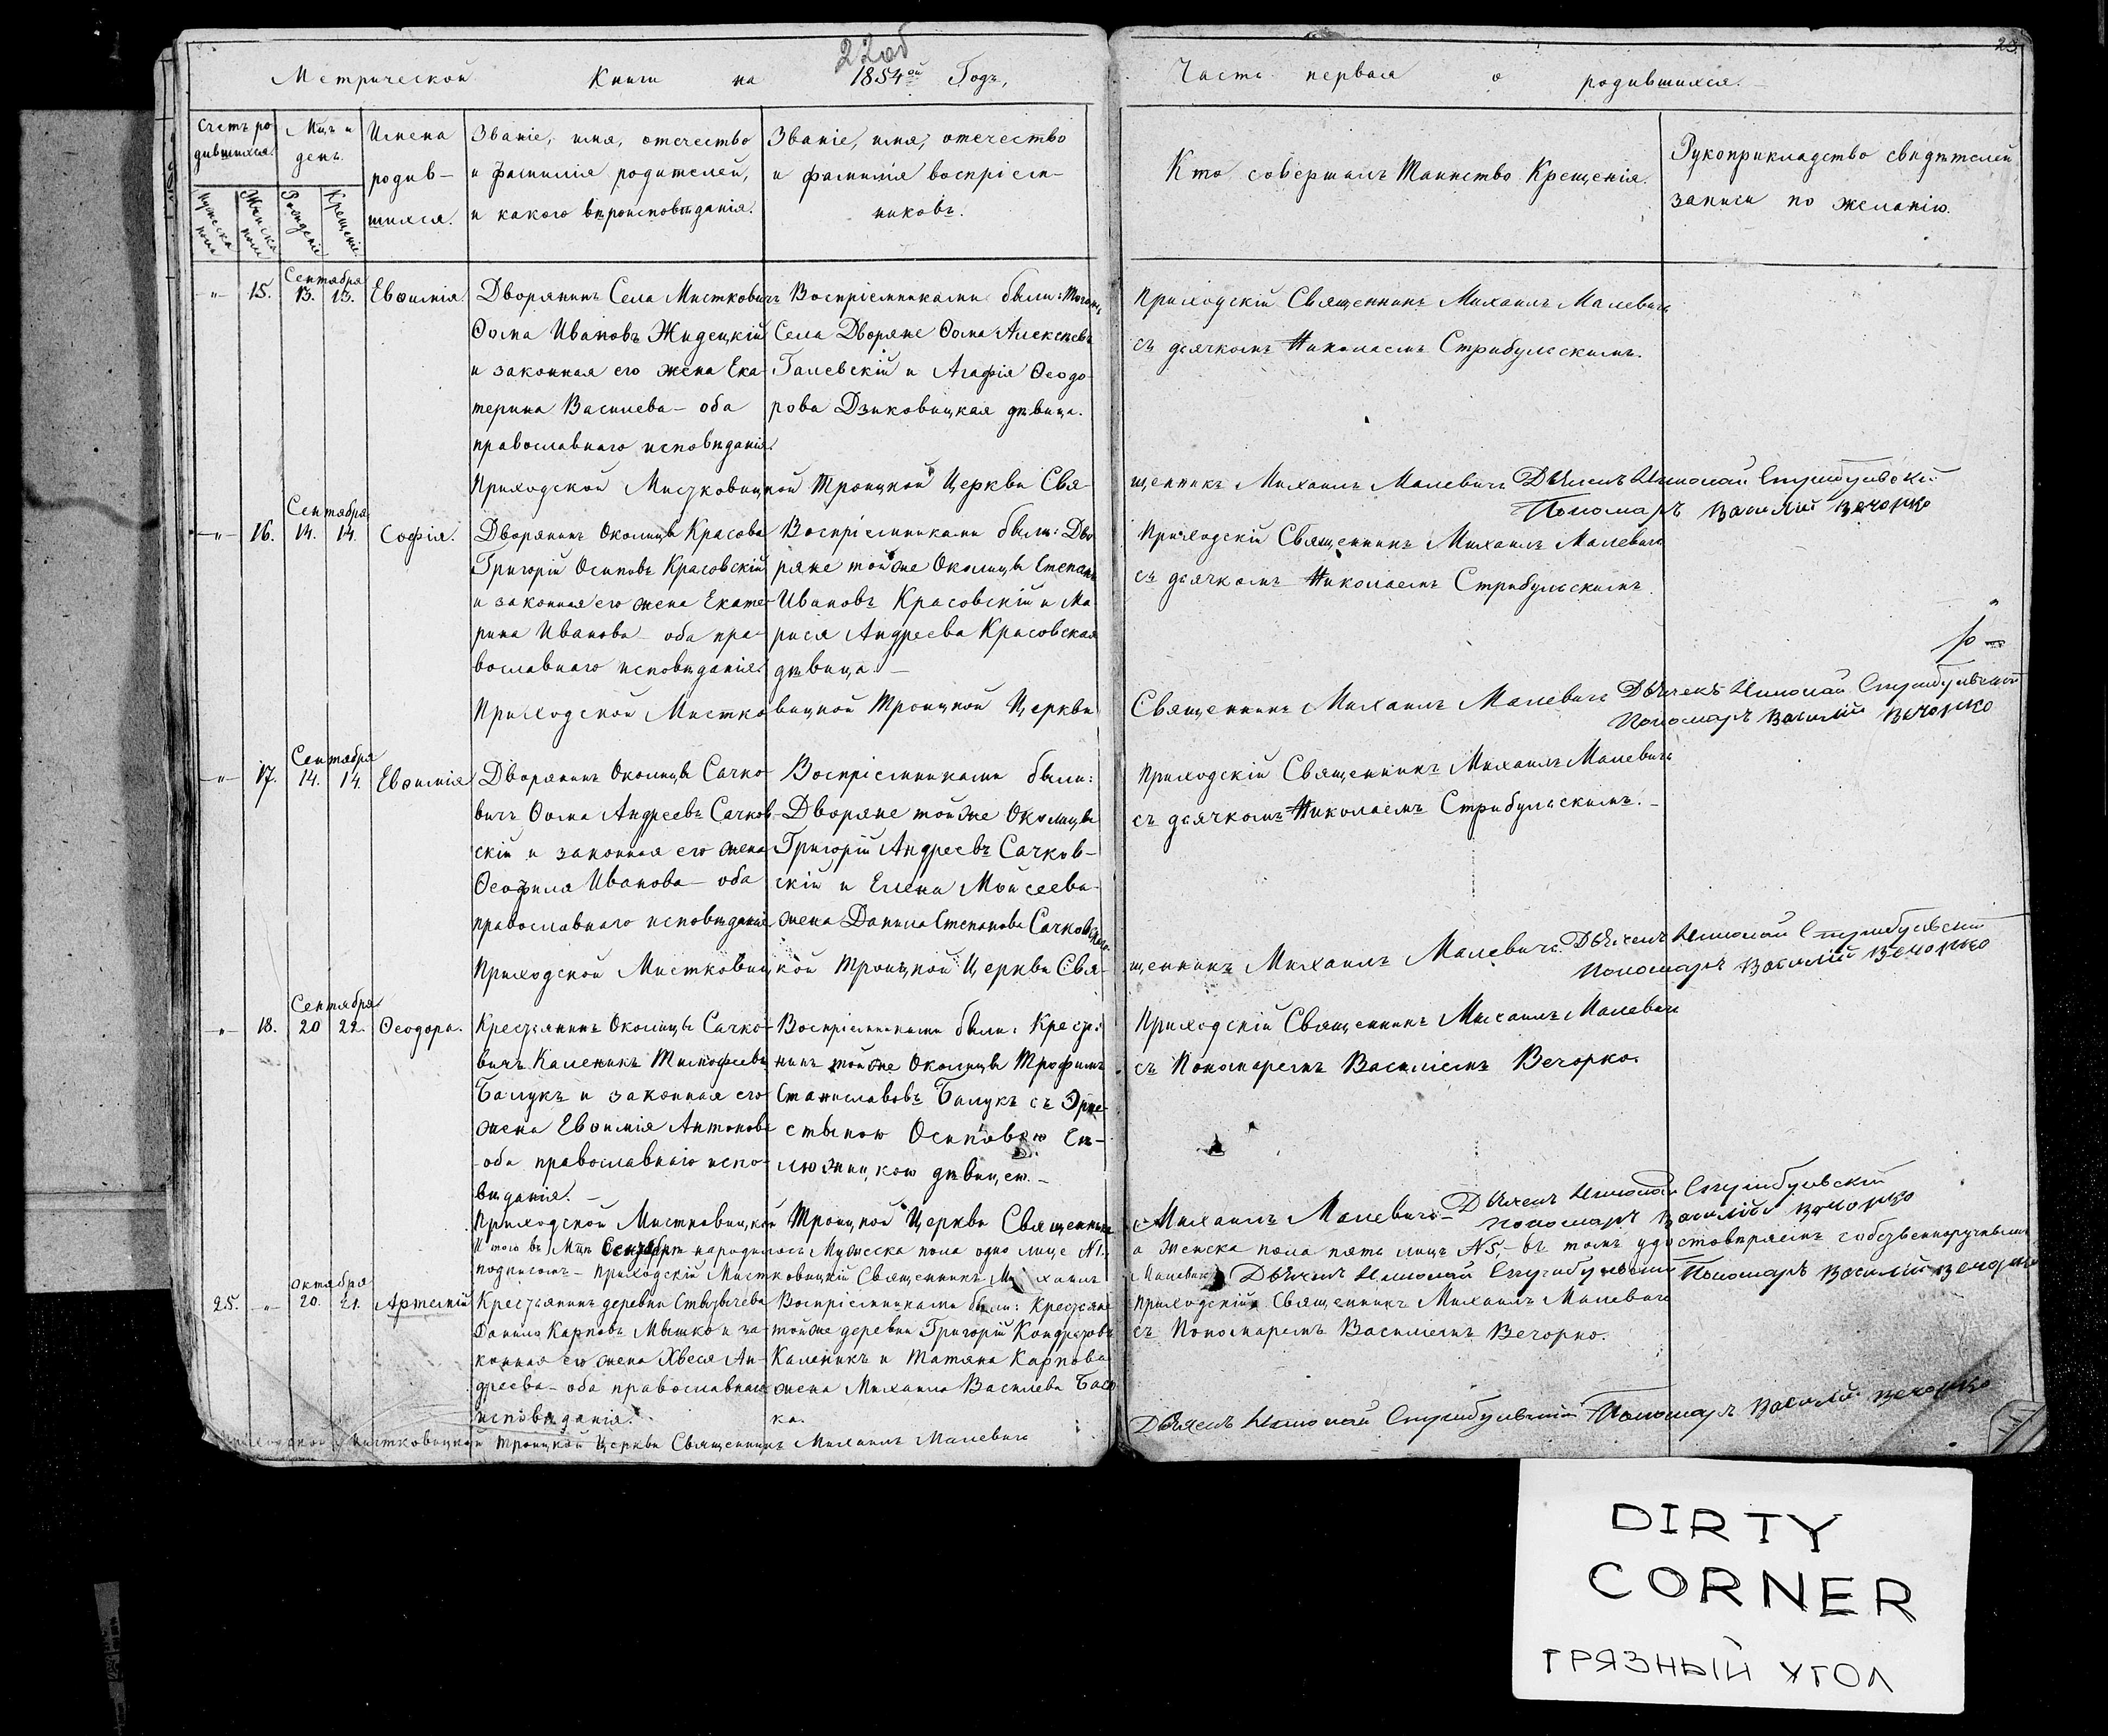 22об
23.
Метрической Книги на 1854ой Годъ,
Часть первая о родившихся.
Счетъ родившихся.
Мужеска пола
Женска пола
Мцъ и день.
Рожденіе
Крещеніе.
Имена родив-
шихся.
Званіе, имя, отечество
и фамилія родителей,
и какого вѣроисповѣданія.
Званіе, имя, отечество
и фамилія воспріем-
никовъ.
Кто совершалъ Таинство Крещенія.
Рукоприкладство свидѣтелей
записи по желанію.
-"- 15. Сентября 13. 13. Евѳимія.
Дворянинъ Села Мистковичъ
Ѳома Ивановъ Жидецкій
и законная его жена Ека-
терина Василева - оба
православнаго исповѣданія.
Воспріемниками были: Тогожъ
Села Дворяне Ѳома Алексѣевъ
Галевскій и Агафія Ѳеодо-
рова Дзиковицкая дѣвица.
Приходскій Священникъ Михаилъ Малевичъ
съ дьячкомъ Николаемъ Стрибульскимъ.
Приходской Мистковицкой Троицкой Церкви Свя-
щенникъ Михаилъ Малевичъ Дьячекъ Николай Стрибульский
Пономарь Василий Вечорко
-"- 16. Сентября 14. 14. Софія.
Дворянинъ Околицы Красова
Григорій Осиповъ Красовскій
и законная его жена Екате-
рина Иванова - оба пра-
вославнаго исповѣданія.
Воспріемниками были: Дво
ряне той же Околицы Степанъ
Ивановъ Красовскій и Ма
рися Андреева Красовская
дѣвица. -
Приходскій Священникъ Михаилъ Малевичъ
съ дьячкомъ Николаемъ Стрибульскимъ
Приходской Мистковицкой Троицкой Церкви
Священникъ Михаилъ Малевичъ Дьячекъ Николай Стрибульский
Пономарь Василий Вечорко
-"- 17. Сентября 14. 14. Евѳимія
Дворянинъ Околицы Сачко-
вичъ Ѳома Андреевъ Сачков-
скій и законная его жена
Ѳеофила Иванова - оба
православнаго исповѣданія.
Воспріемниками были:
Дворяне той же Околицы
Григорій Андреевъ Сачков-
скій и Елена Моисеева
жена Данила Степанова Сачковскаго.
Приходскій Священникъ Михаилъ Малевичъ
съ дьячкомъ Николаемъ Стрибульскимъ. -
Приходской Мистковицкой Троицкой Церкви Свя-
щенникъ Михаилъ Малевичъ. Дьячекъ Николай Стрибульский
Пономарь Василий Вечорко
-"- 18. Сентября 20 22. Ѳеодора.
Крестьянинъ Околицы Сачко-
вичъ Каленикъ Тимофеевъ
Балукъ и законная его
жена Евѳимія Антонова
- оба православнаго испо-
вѣданія. -
Воспріемниками были: Крестья-
нинъ той же Околицы Трофимъ
Станиславовъ Балукъ съ Эрне-
стыною Осиповою
дѣвицею. -
Приходскій Священникъ Михаилъ Малевичъ
съ Пономаремъ Василіемъ Вечорко.
Приходской Мистковицкой Троицкой Церкви Священникъ
Михаилъ Малевичъ - Дьячекъ Николай Стрибульский
Пономарь Василий Вечорко
Итого въ Мцѣ Сентябрѣ народилось Мужеска пола одно лице №1.
а женска пола пять лицъ №5, - въ томъ удостовѣряемъ собственноручнымъ
подписомъ - Приходскій Мистковицкій Священникъ Михаилъ
Малевичъ Дьячекъ Николай Стрибульский Пономарь Василий Вечорко
25. -"- октября 20. 21. Артемій
Крестьянинъ деревни Ствзычева
Данило Карповъ Мышко и за-
конная его жена Хвеся Ан-
дреева - оба православнаго
исповѣданія.
Воспріемниками были: Крестьяне
той же деревни Григорій Кондратовъ
Каленикъ и Татяна Карпова
жена Михаила Василева Басо
ка.
Приходскій Священникъ Михаилъ Малевичъ
съ Пономаремъ Василіемъ Вечорко.
Приходской Мистковицкой Троицкой Церкви Священникъ Михаилъ Малевичъ
Дьячекъ Николай Стрибульский Пономарь Василий Вечорко
DIRTY
CORNER
ГРЯЗНЫЙ УГОЛ